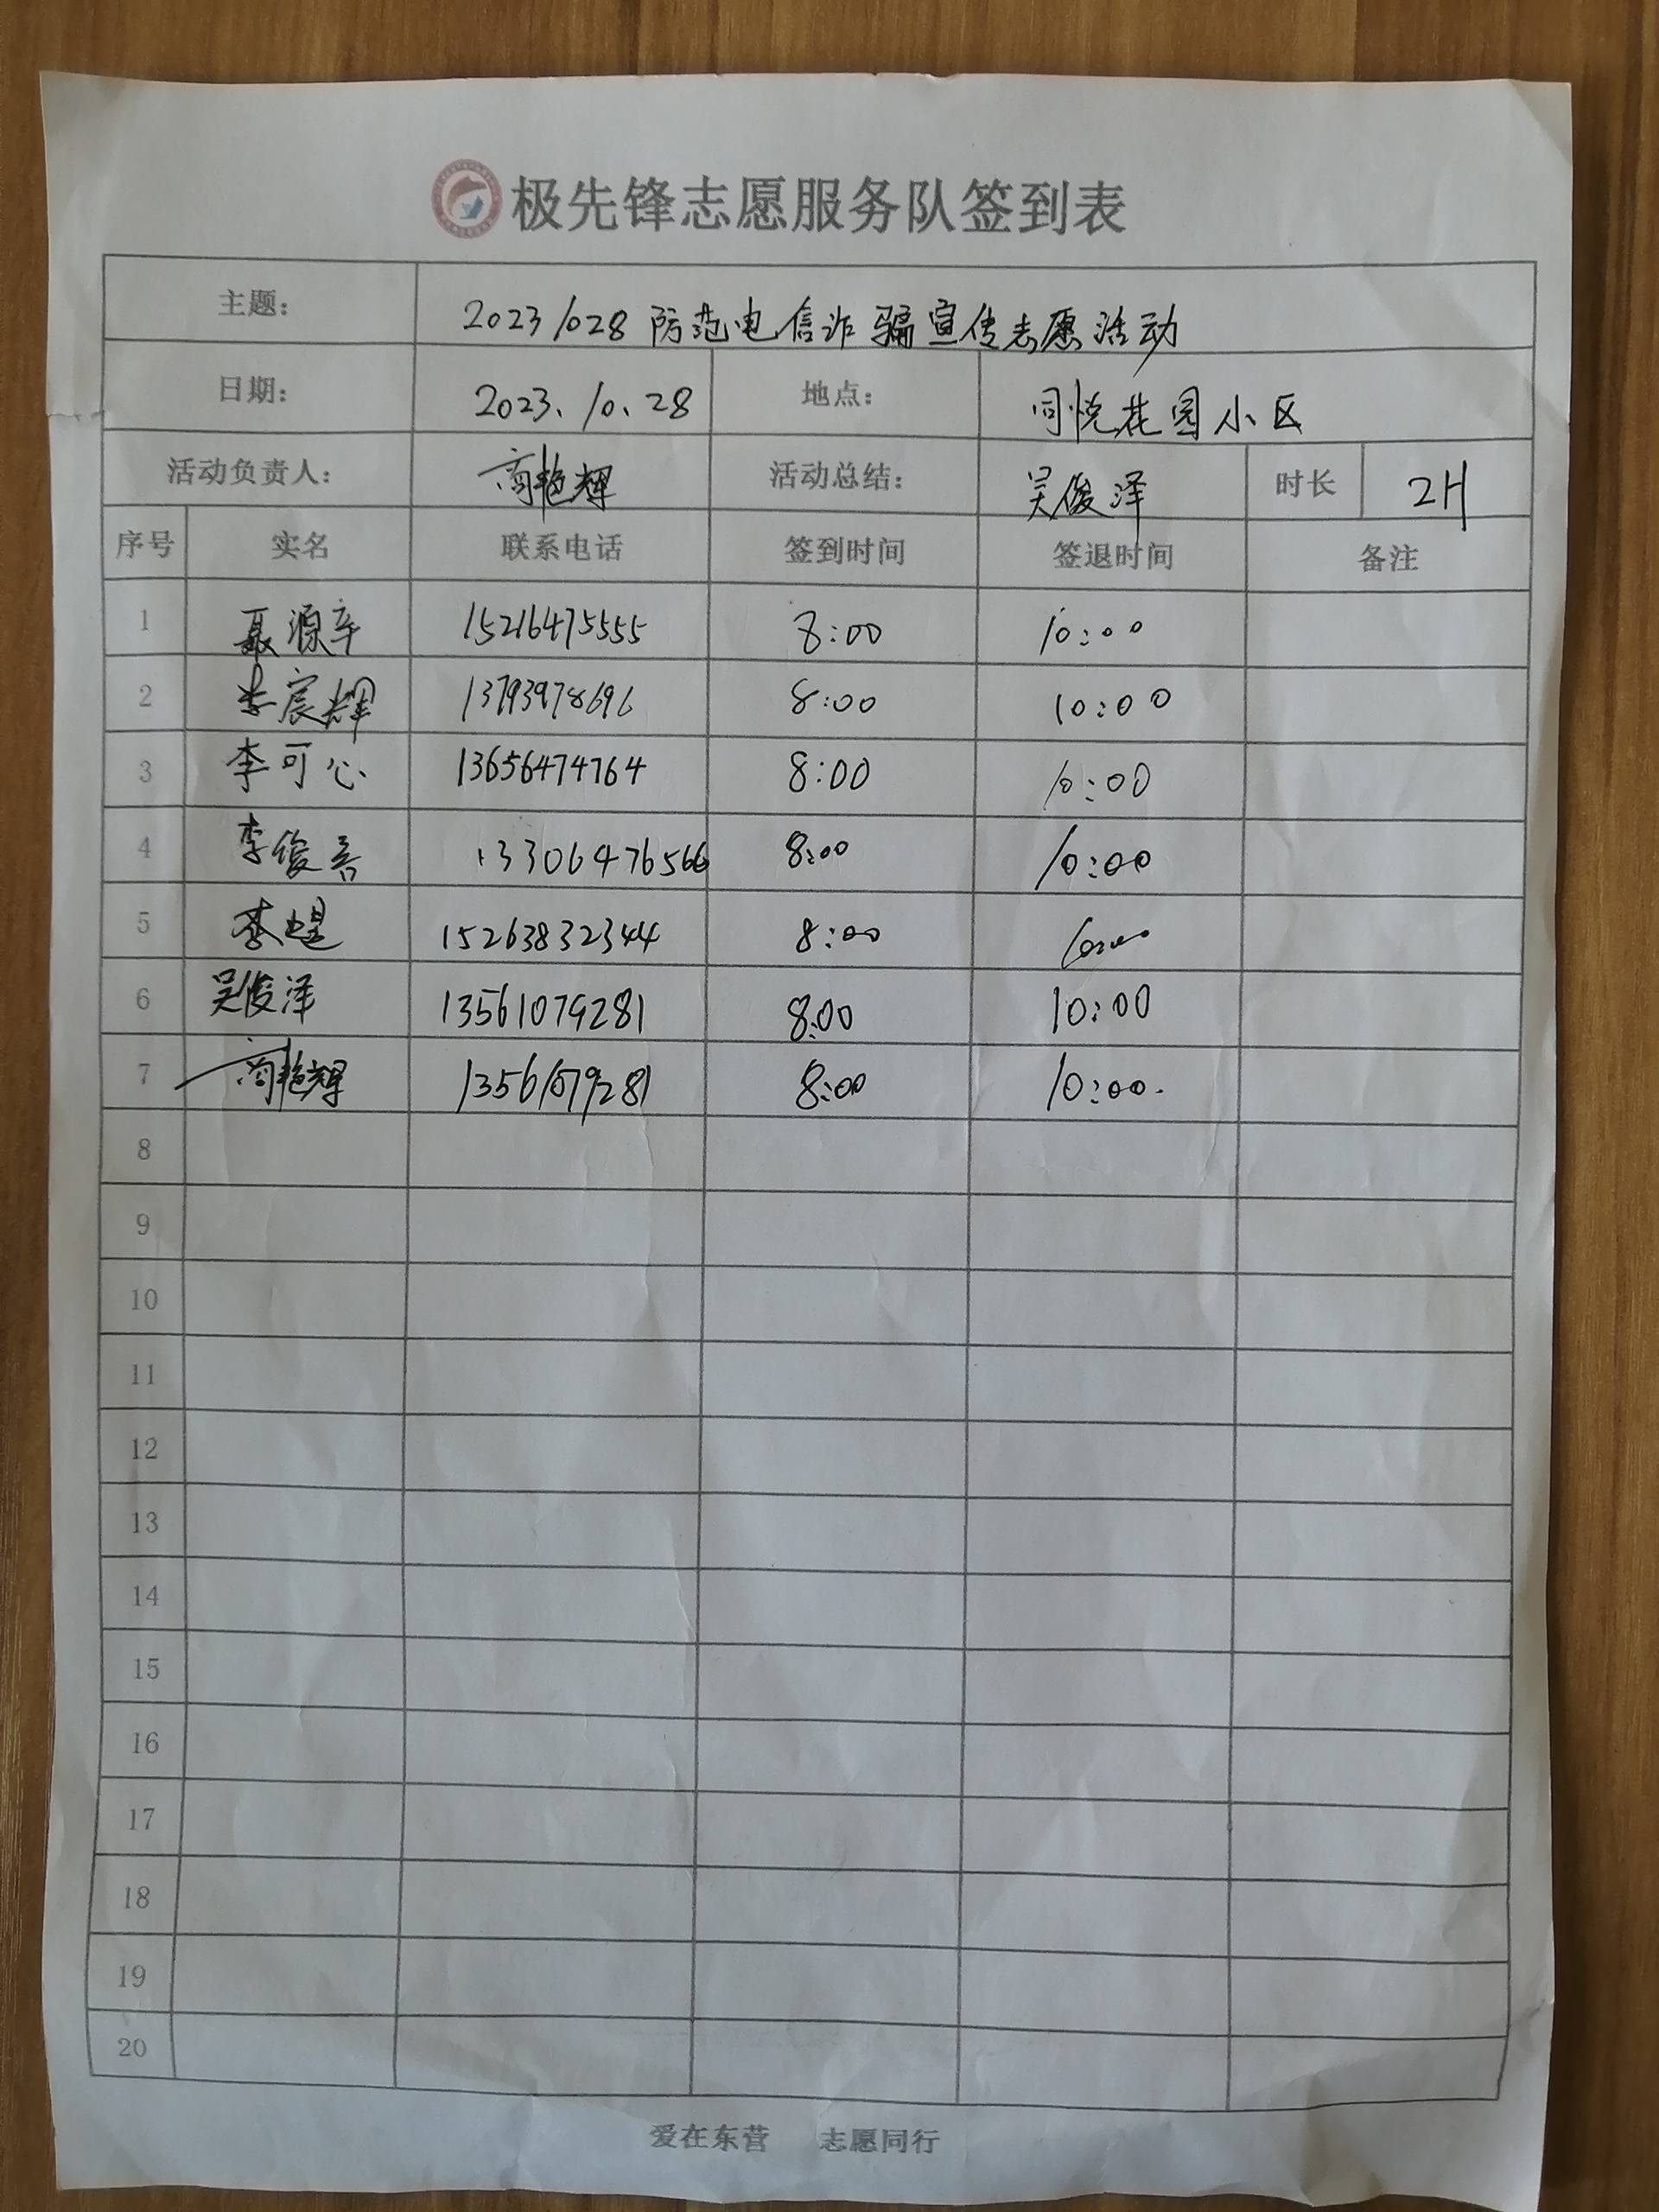 极先锋志愿服务队签到表
主题： 20231028防范电信诈骗宣传志愿活动
日期： 2023.10.28 地点： 同悦花园小区
活动负责人： 商艳辉 活动总结： 吴俊泽 时长 2H
序号 实名 联系电话 签到时间 签退时间 备注
1 聂源辛 15216475555 8:00 10:00
2 李宸辉 13793978696 8:00 10:00
3 李可心 13656474764 8:00 10:00
4 李俊吾 13306476566 8:00 10:00
5 15263832344 8:00 10:00
6 吴俊泽 13561079281 8:00 10:00
7 商艳辉 13561079281 8:00 10:00.
8
9
10
11
12
13
14
15
16
17
18
19
20
爱在东营 志愿同行